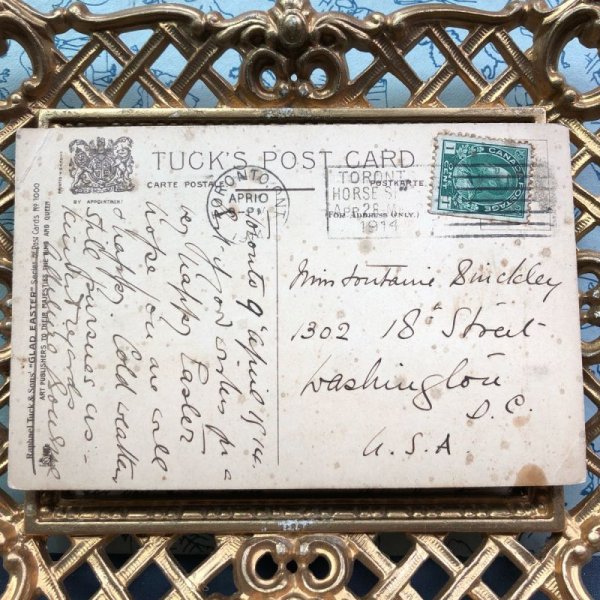 TUCK'S POST CARD
CARTE POSTALE
POSTKARTE
BY APPOINTMENT
(FOR ADDRESS ONLY.)
Raphael Tuck & Sons' "GLAD EASTER" Series of Post Cards No 1000
ART PUBLISHERS TO THEIR MAJESTIES THE KING AND QUEEN
TORONTO, ONT.
APR 10
1914
TORONT
HORSE S
APR 28
1914
CANADA POSTAGE
1
Toronto 9 April 1914.
Good wishes for a
very happy Easter
hope you are well
& happy Cold weather
still pursues us
kind regards
Miss Fontaine Binckley
1302 18th Street
Washington
D.C.
U.S.A.